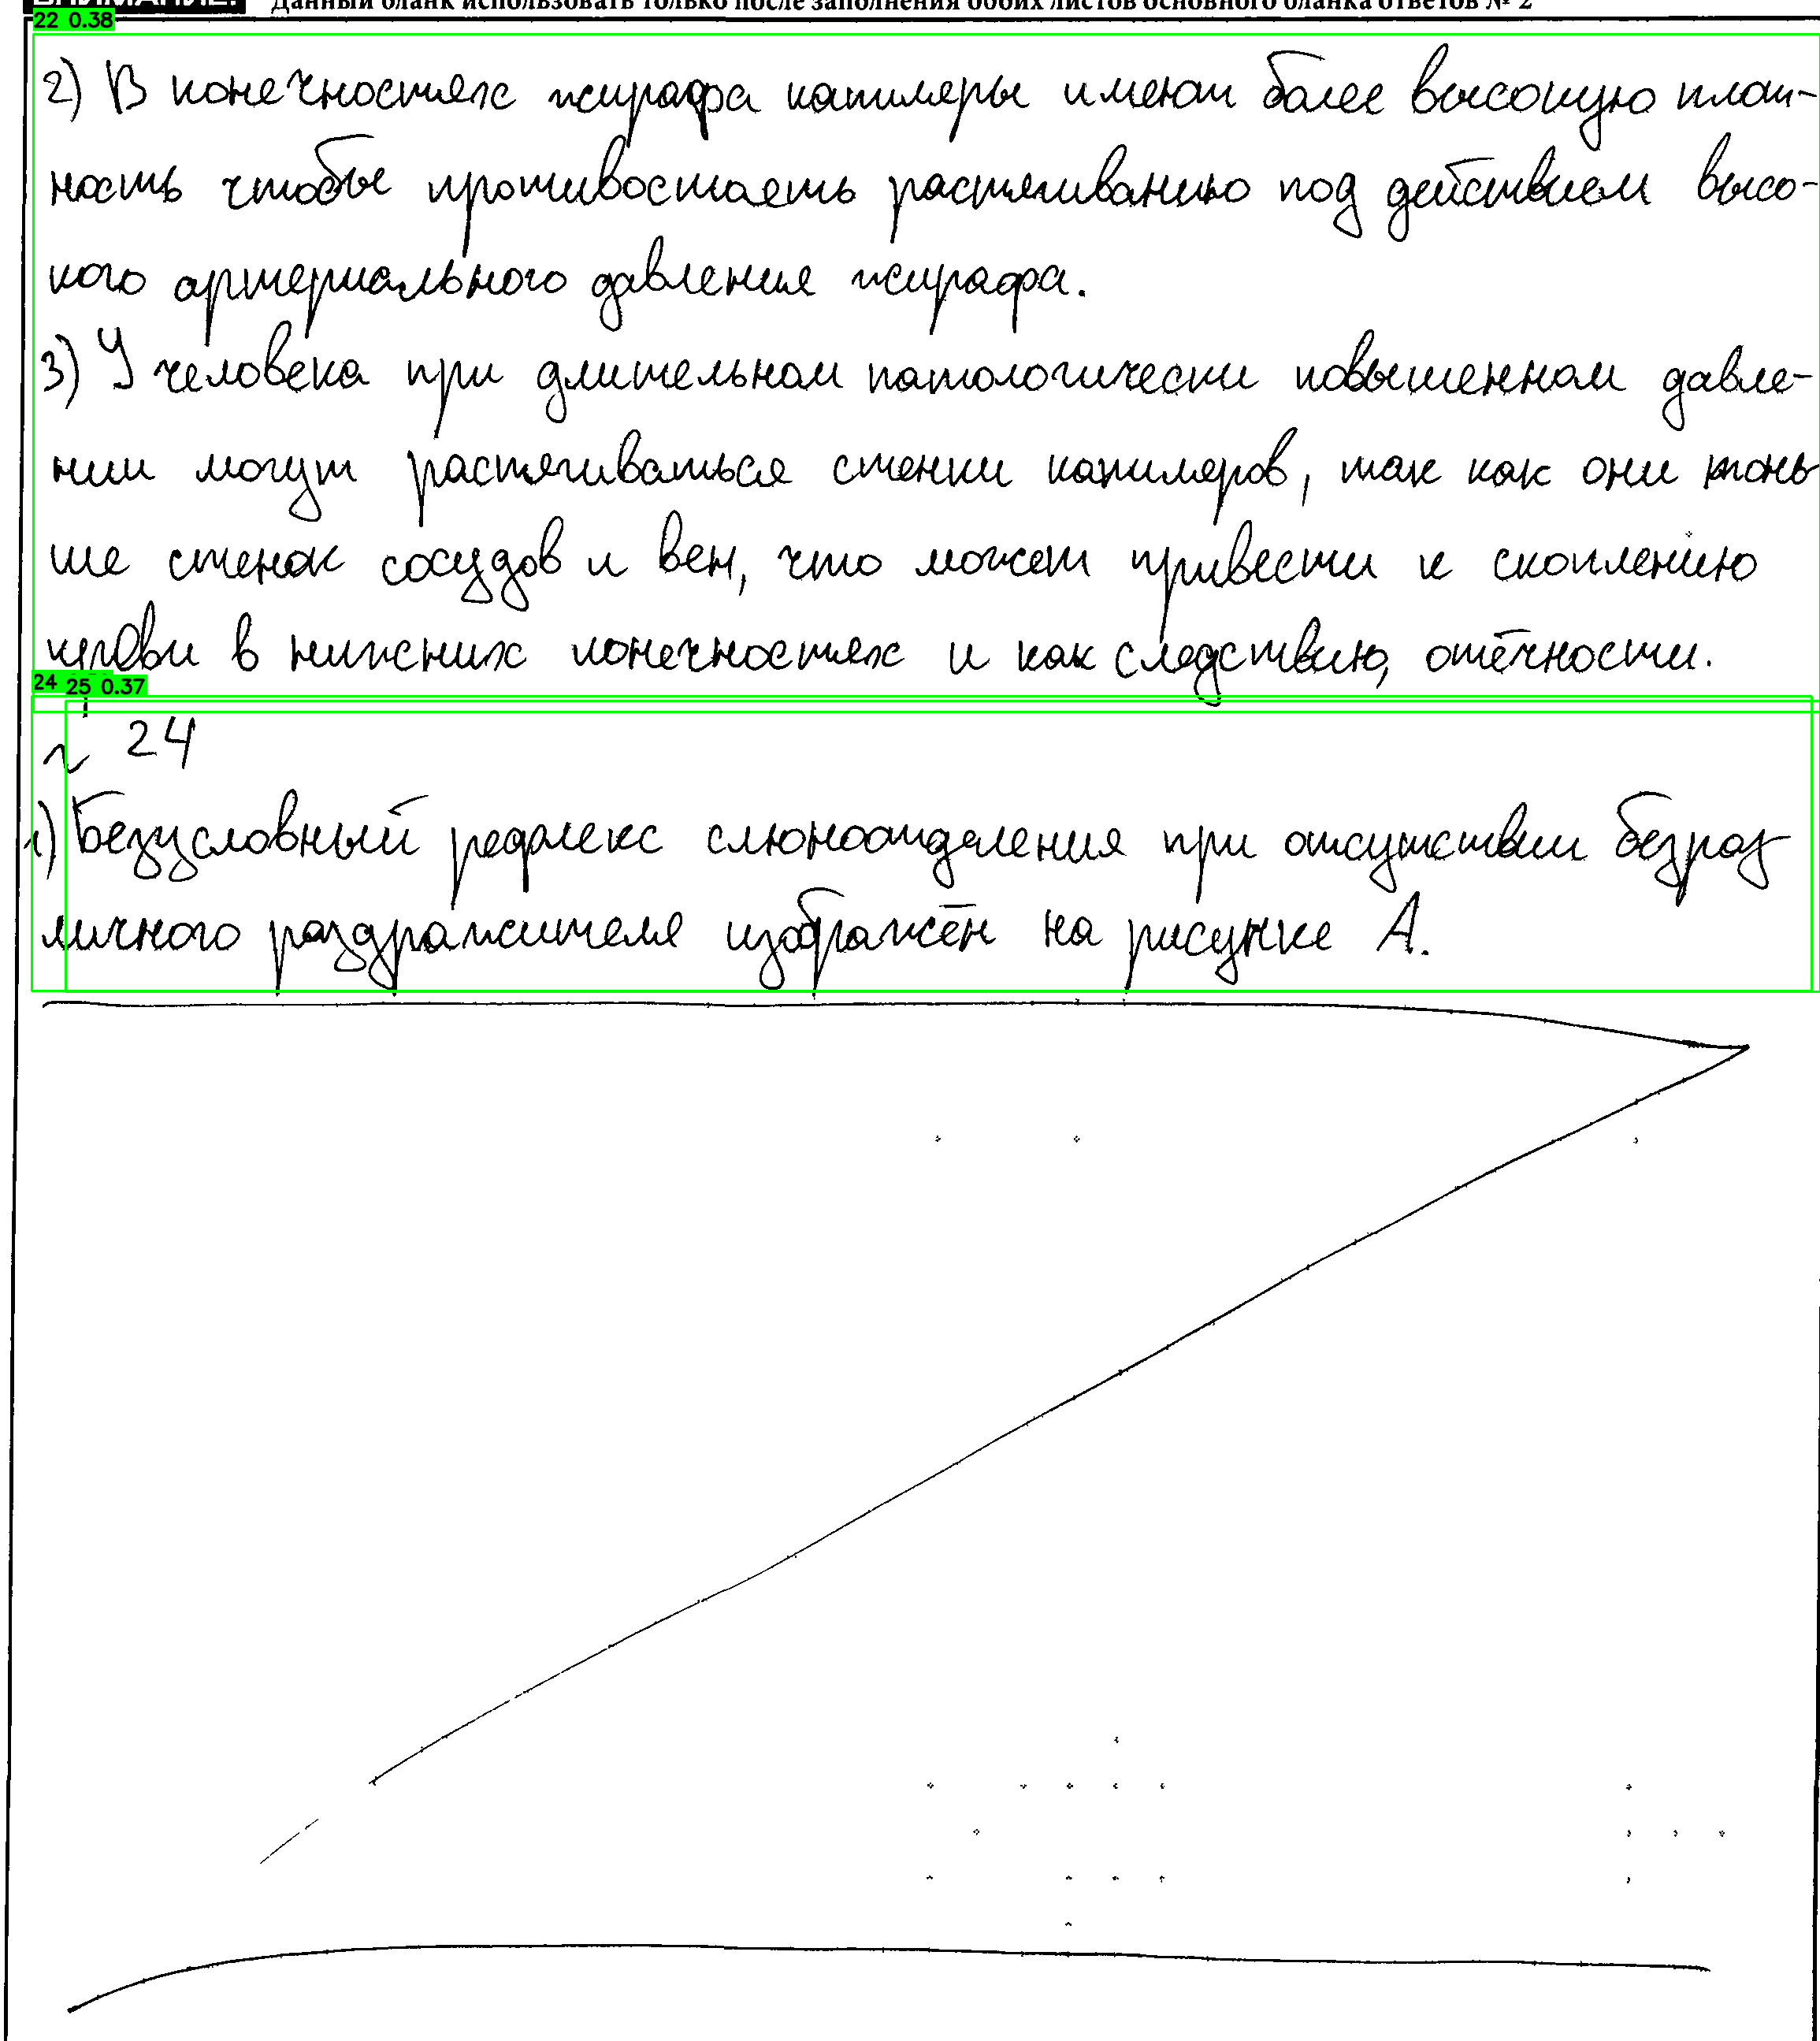 ВНИМАНИЕ! Данный бланк использовать только после заполнения обоих листов основного бланка ответов № 2
22 0.38
2) В конечностях жирафа капиляры имеют более высокую плот-
ность чтобы противостаять растягиванию под действием высо-
кого артериального давления жирафа.
3) У человека при длительном патологически повышенном давле-
нии могут растягиваться стенки капиляров, так как они тонь
ше стенок сосудов и вен, что может привести к скоплению
крови в нижних конечностях и как следствию, отёчности.
24 25 0.37
№ 24
1) Безусловный рефлекс слюноотделения при отсутствии безраз
личного раздражителя изображён на рисунке А.